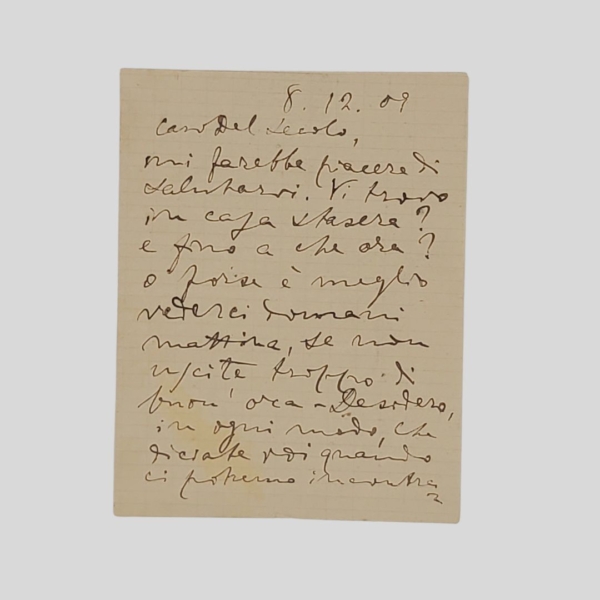 8. 12. 09
caro Del Secolo,
mi farebbe piacere di
salutarvi. Vi trovo
in casa stasera?
e fino a che ora?
o forse è meglio
vederci domani
mattina, se non
uscite troppo di
buon' ora - Desidero,
in ogni modo, che
diciate voi quando
ci potremo incontra=